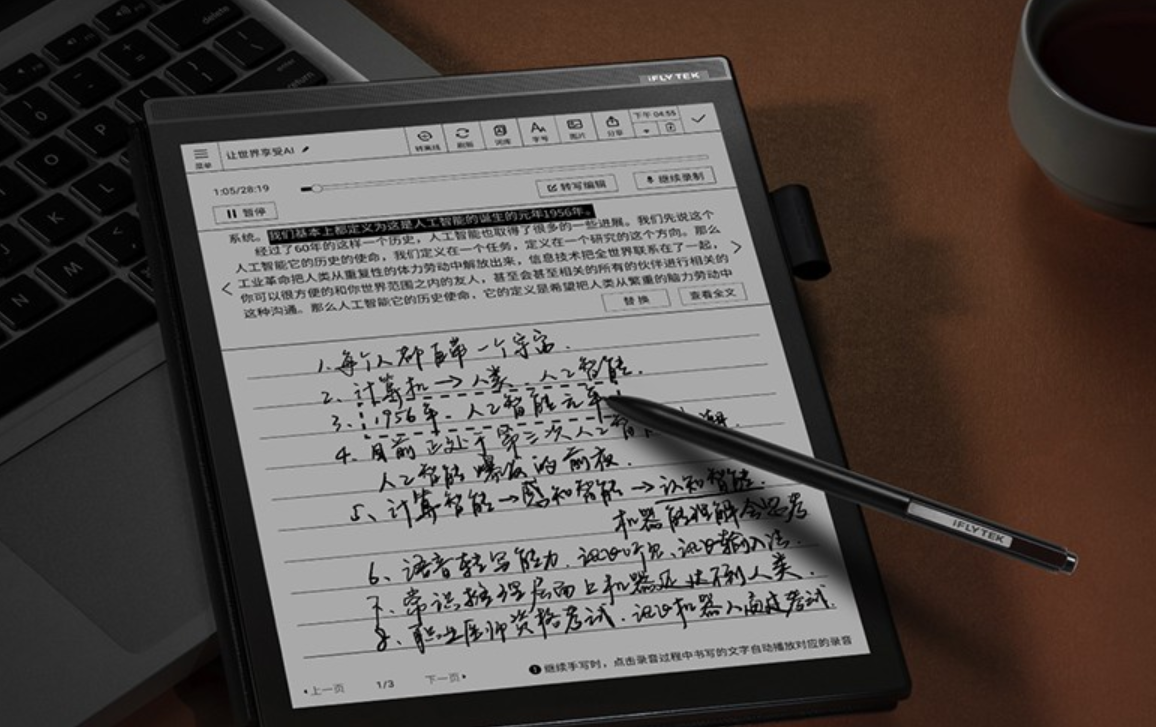 iFLYTEK
下午 04:55
菜单 让世界享受AI 转离线 刷新 词库 字号 图片 分享
1:05/28:19
暂停 转写编辑 继续录制
系统。我们基本上都定义为这是人工智能的诞生的元年1956年。
经过了60年的这样一个历史，人工智能也取得了很多的一些进展。我们先说这个
人工智能它的历史的使命，我们定义在一个任务，定义在一个研究的这个方向。那么
工业革命把人类从重复性的体力劳动中解放出来，信息技术把全世界联系在了一起，
你可以很方便的和你世界范围之内的友人，甚至会甚至相关的所有的伙伴进行相关的
这种沟通。那么人工智能它的历史使命，它的定义是希望把人类从繁重的脑力劳动中
替换 查看全文
1.每个人都自带一个宇宙.
2、计算机→人类.人工智能.
3、1956年.人工智能元年
4、目前正处于第三次人工智 潮.
人工智能爆发的前夜.
5、计算智能→感知智能→认知智能.
机器能理解会思考
6、语音转写能力.讯飞听见、讯飞输入法.
7、常识推理层面上机器还达不到人类.
8、职业医师资格考试.讯飞机器人高过考试.
上一页 1/3 下一页
1 继续手写时，点击录音过程中书写的文字自动播放对应的录音
iFLYTEK
delete
return
O
P
K
L
M